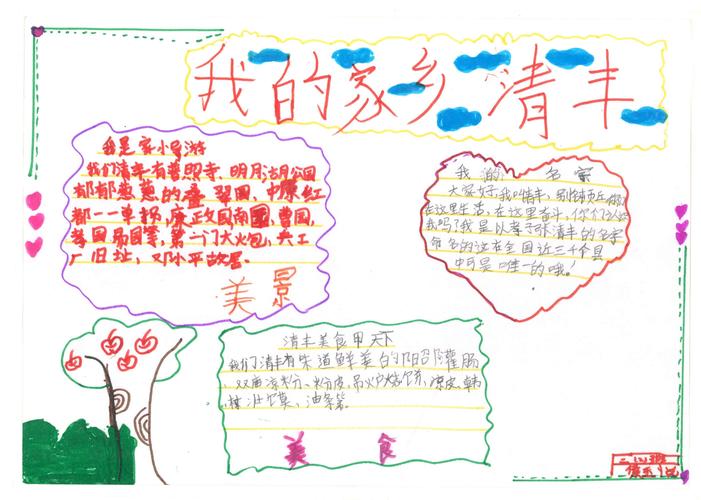 我的家乡清丰
我是家小导游
我们清丰有普照寺、明月湖公园
郁郁葱葱的叠翠园,中原红
都一单拐,廉政园南园,曹园,
孝园帛园等,第一门大火包,兵工
厂旧址,邓小平故居
美景
我的名家
大家好,我叫清丰,
在这里生活,在这里奋斗,你们
我吗?我是以孝子张清丰的名字
命名的这在全国近三千个县
中可是唯一的哦!
清丰美食甲天下
我们清丰有味道鲜美的阳邵灌肠
、双庙凉粉、粉皮、吊炉烧饼、凉皮、韩
油馍、油条等
美食